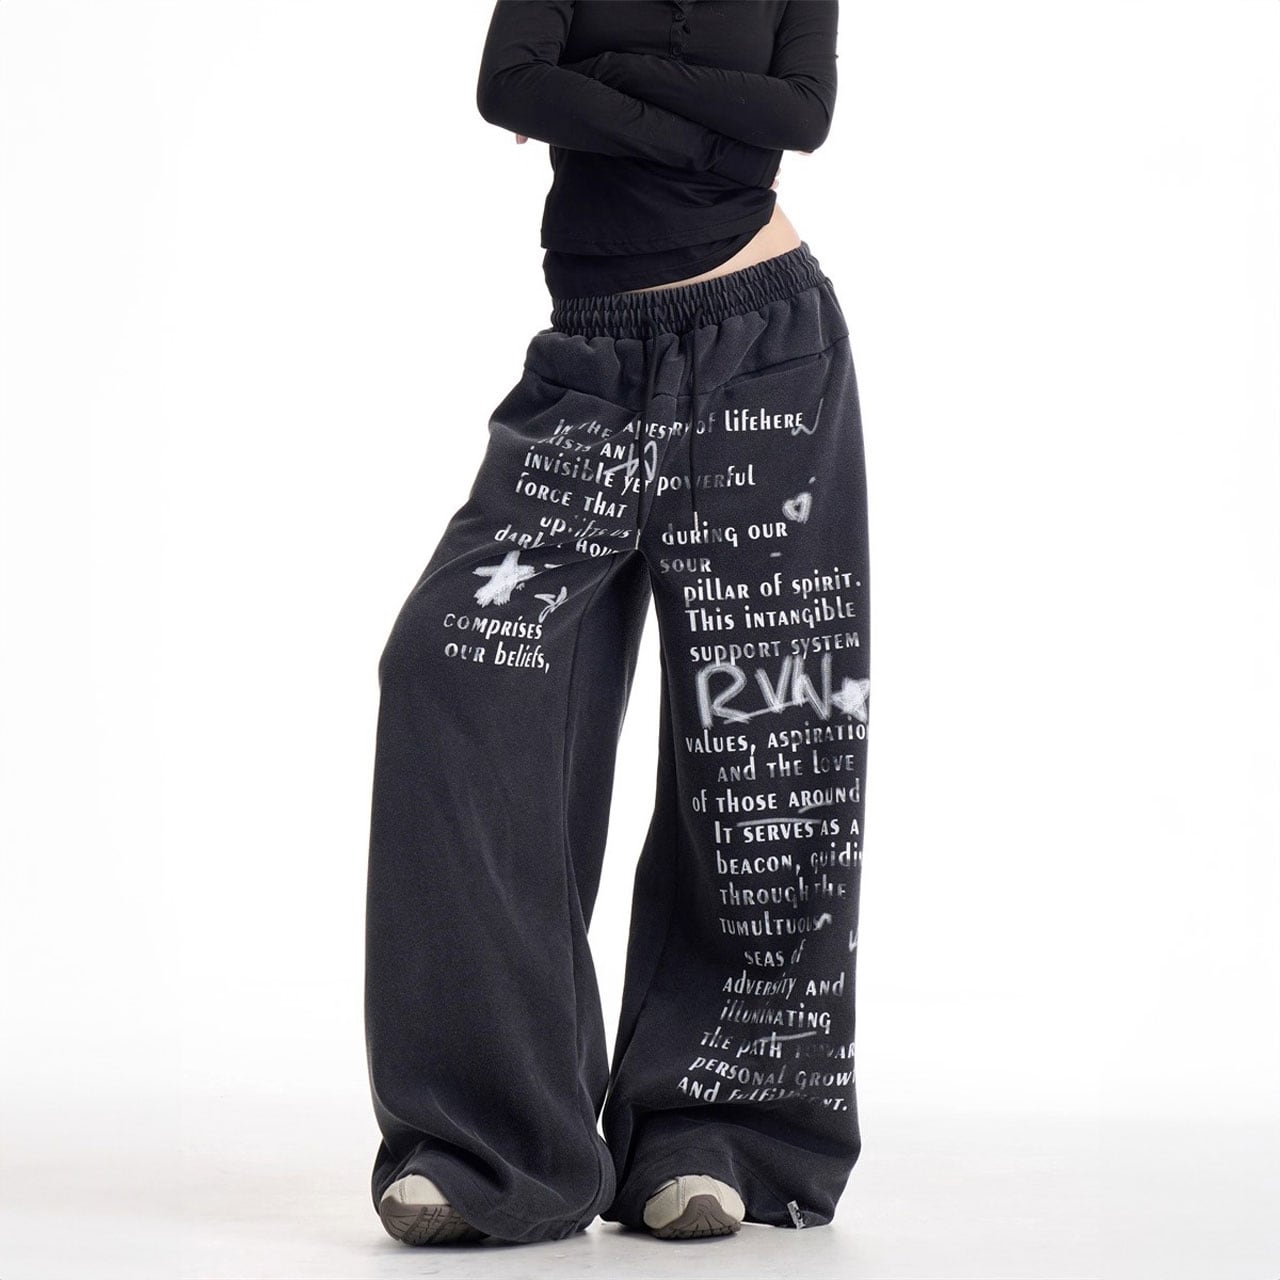 IN THE TAPESTRY of lifeHERE
EXISTS AN
invisible yet powerful
force THAT
uplifts us during our
darkest hours
sour
pillar of spirit.
This intangible
comprises
support system
our beliefs,
RVN
values, aspiratio
and the love
of those around
It serves as a
beacon, guidin
through the
tumultuous
seas of
adversity and
illuminating
the path towar
personal grow
and fulfillment.